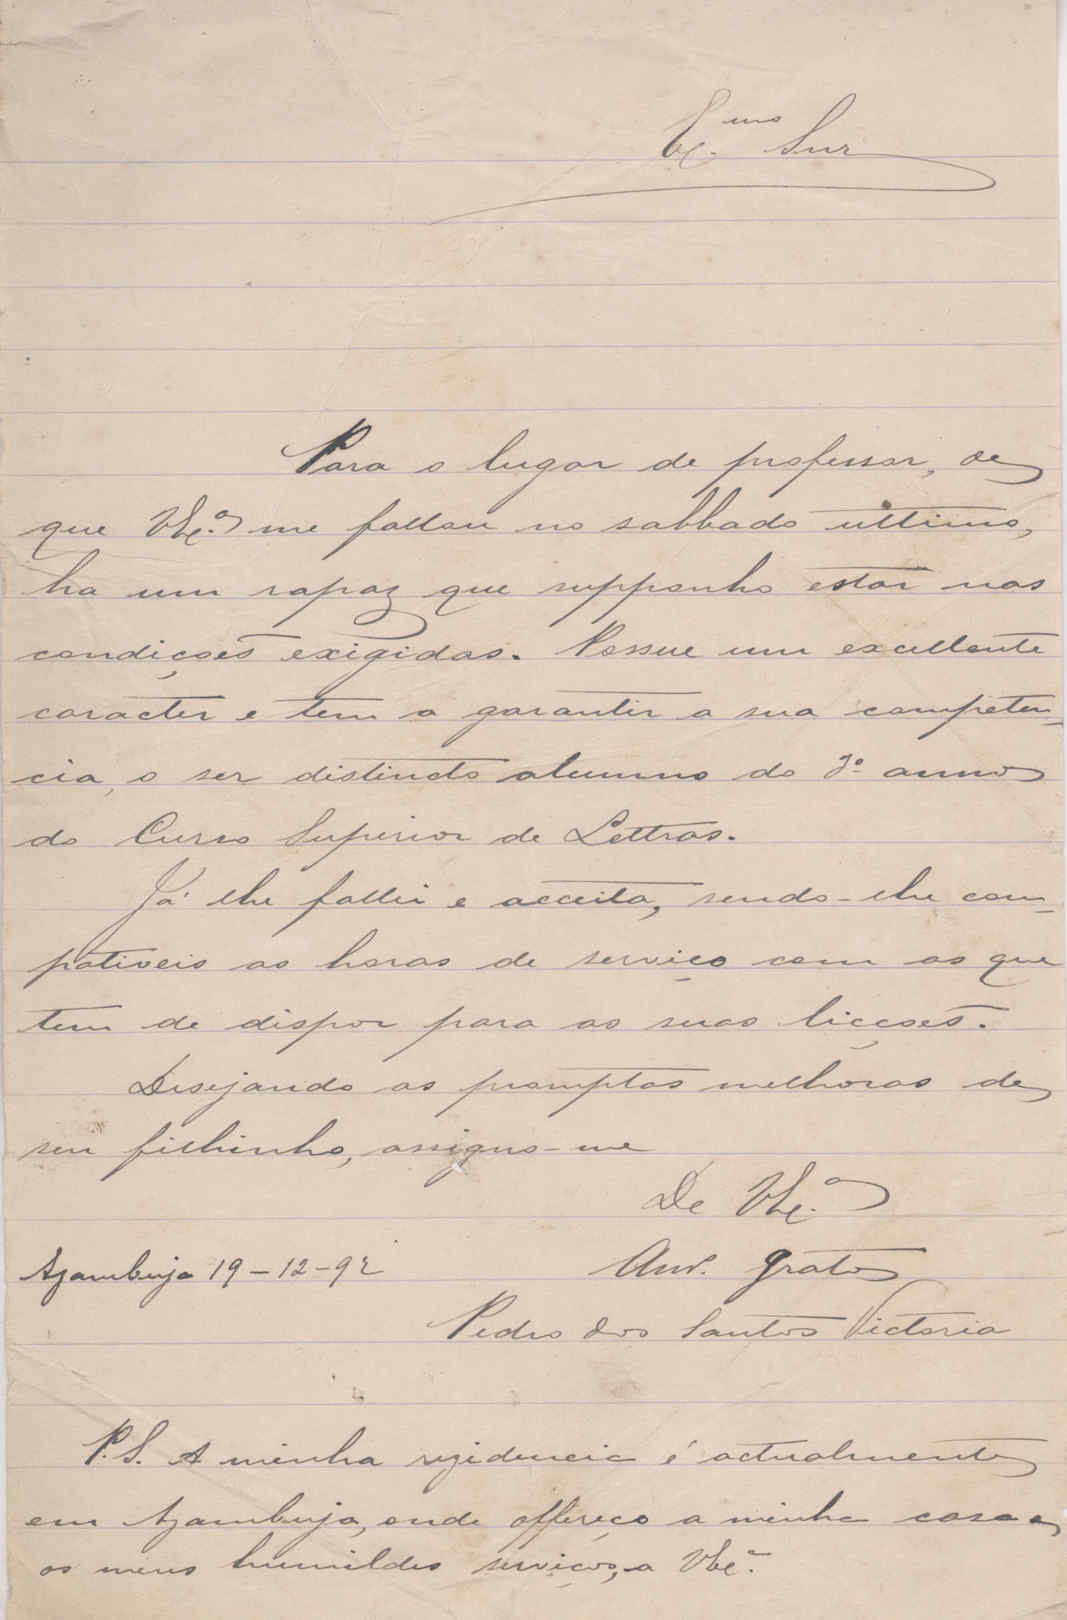 Ex.mo Snr
Para o lugar de professor, de
que V Ex.a me fallou no sabbado ultimo,
ha um rapaz que supponho estar nas
condições exigidas. Possue um excellente
caracter e tem a garantir a sua competen-
cia, o ser distincto alumno do 3º anno
do Curso Superior de Lettras.
Já lhe fallei e acceita, sendo-lhe com-
pativeis as horas de serviço com as que
tem de dispor para as suas licções.
Desejando as promptas melhoras de
seu filhinho, assigno-me
De V Ex.a
Azambuja 19-12-92
Am.º grato
Pedro dos Santos Victoria
P.S. A minha rezidencia é actualmente
em Azambuja, onde offereço a minha casa e
os meus humildes serviços, a V Ex.a